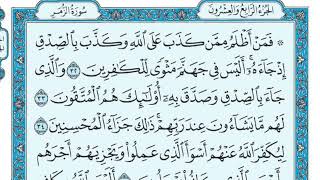 الجزء الرابع والعشرون سورة الزمر
۞ فَمَنْ أَظْلَمُ مِمَّن كَذَبَ عَلَى ٱللَّهِ وَكَذَّبَ بِٱلصِّدْقِ
إِذْ جَآءَهُۥٓ أَلَيْسَ فِى جَهَنَّمَ مَثْوًى لِّلْكَٰفِرِينَ ٣٢ وَٱلَّذِى
جَآءَ بِٱلصِّدْقِ وَصَدَّقَ بِهِۦٓ أُو۟لَٰٓئِكَ هُمُ ٱلْمُتَّقُونَ ٣٣
لَهُم مَّا يَشَآءُونَ عِندَ رَبِّهِمْ ذَٰلِكَ جَزَآءُ ٱلْمُحْسِنِينَ ٣٤
لِيُكَفِّرَ ٱللَّهُ عَنْهُمْ أَسْوَأَ ٱلَّذِى عَمِلُوا۟ وَيَجْزِيَهُمْ أَجْرَهُم